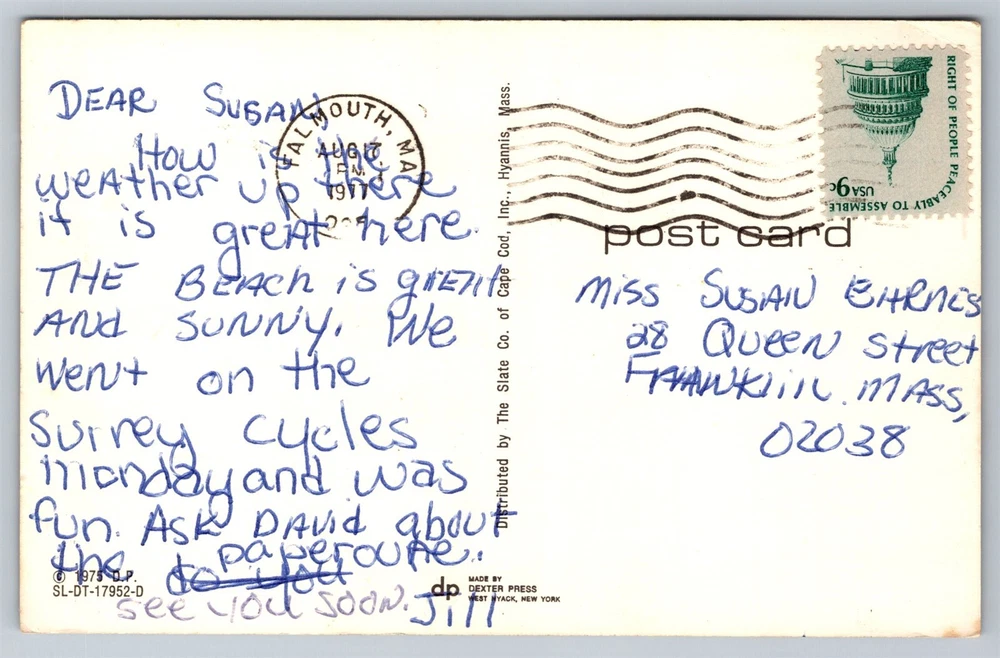 DEAR SUSAN,
How is the
weather up there
it is great here.
THE BEACH is great
AND SUNNY. We
went on the
Surrey cycles
monday and was
fun. Ask DAVID about
the paperoute.
to you
see you soon. Jill
FALMOUTH, MA
AUG
PM
1977
Distributed by The Slate Co. of Cape Cod, Inc., Hyannis, Mass.
© 1975 D.P.
SL-DT-17952-D
dp MADE BY
DEXTER PRESS
WEST NYACK, NEW YORK
RIGHT OF PEOPLE PEACEABLY TO ASSEMBLE
USA 9c
post card
Miss SUSAN BARNES
28 Queen street
FRANKlin. MASS,
02038